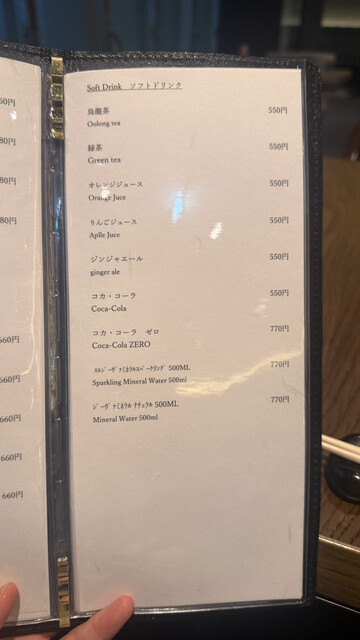 50円
80円
80円
80円
660円
660円
660円
660円
660円
Soft Drink ソフトドリンク
烏龍茶 550円
Oolong tea
緑茶 550円
Green tea
オレンジジュース 550円
Orange Juce
りんごジュース 550円
Aplle Juce
ジンジャエール 550円
ginger ale
コカ・コーラ 550円
Coca-Cola
コカ・コーラ ゼロ 770円
Coca-Cola ZERO
ｽﾙｼﾞｰｳﾞｧﾐﾈﾗﾙｽﾊﾟｰｸﾘﾝｸﾞ 500ML 770円
Sparkling Mineral Water 500ml
ｼﾞｰｳﾞｧﾐﾈﾗﾙ ﾅﾁｭﾗﾙ 500ML 770円
Mineral Water 500ml